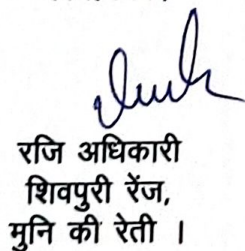 रजि अधिकारी
शिवपुरी रेंज,
मुनि की रेती ।